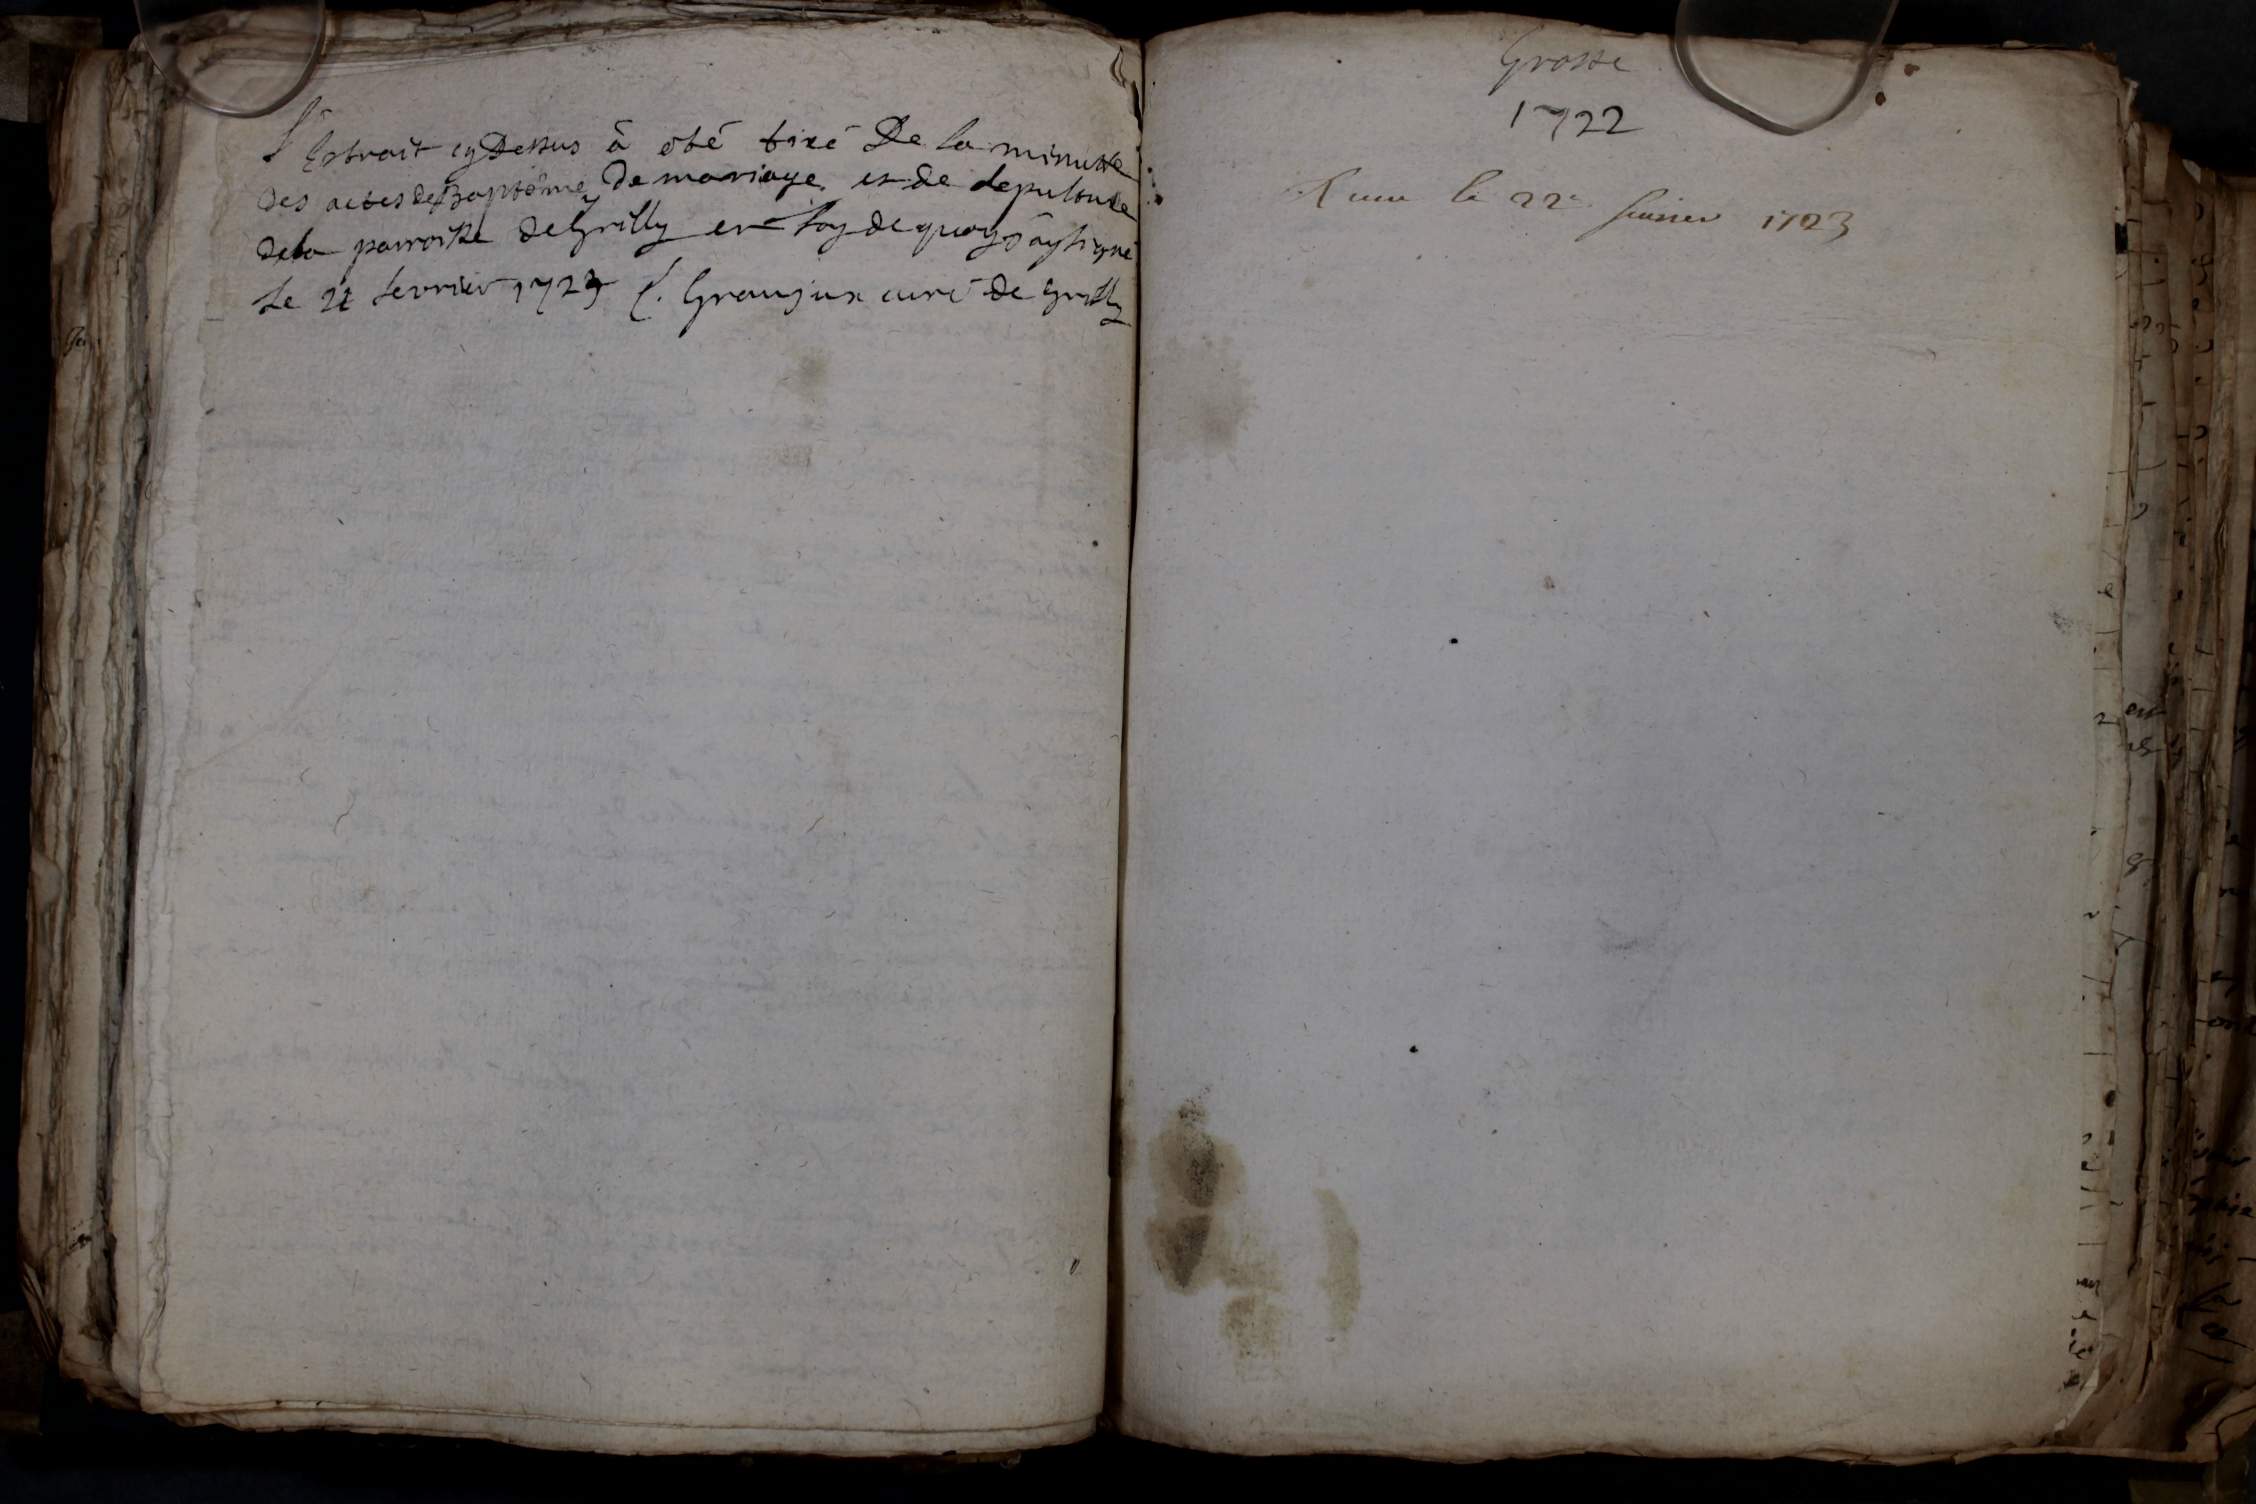 L'Extrait cy dessus â eté tiré De la minutte
des actes de Baptême, de mariage et de sepulture
de la parroisse de Grilly en foy de quoy j'ây signé
le 22 fevrier 1723 C. Granjux curé de Grilly
Grosse
1722
le 22e fevrier 1723